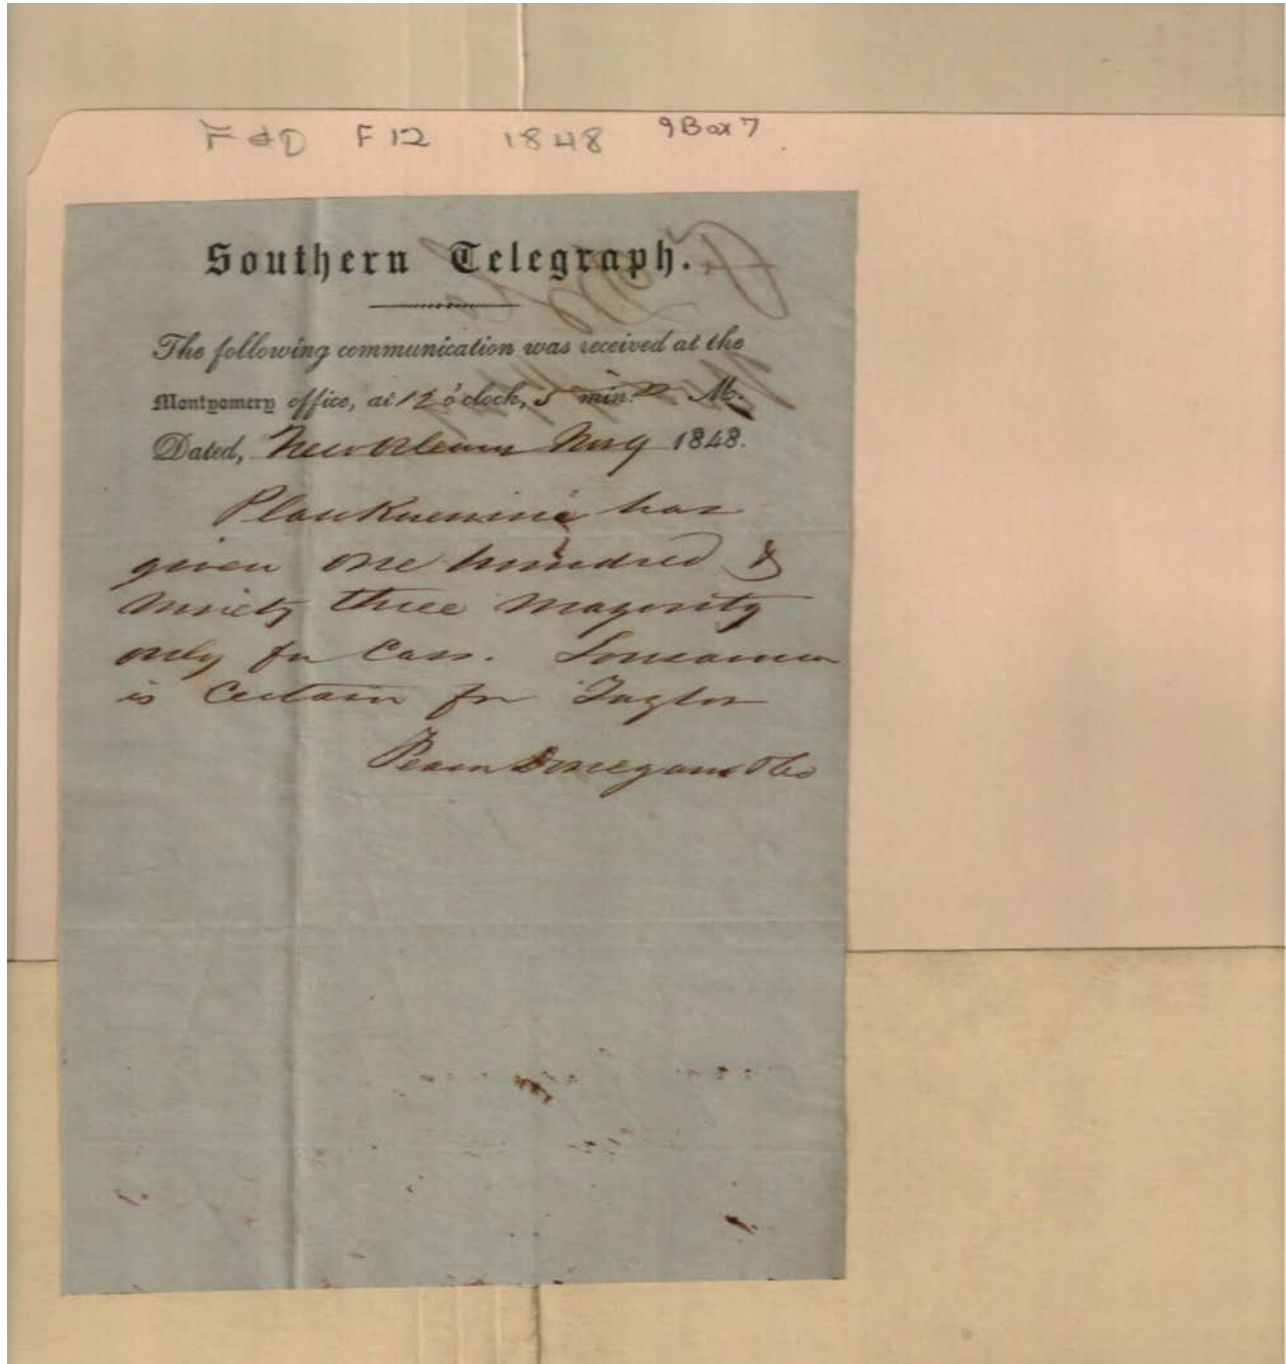 F&D F12 1848 9 Box 7
Southern Telegraph.
The following communication was received at the
Montgomery office, at 12 o'clock, 5 min. M.
Dated, New Orleans Nov 9 1848.
Plaukuemine has
given one hundred &
ninety three majority
only for Cass. Louisiana
is certain for Taylor
Donegan & Co